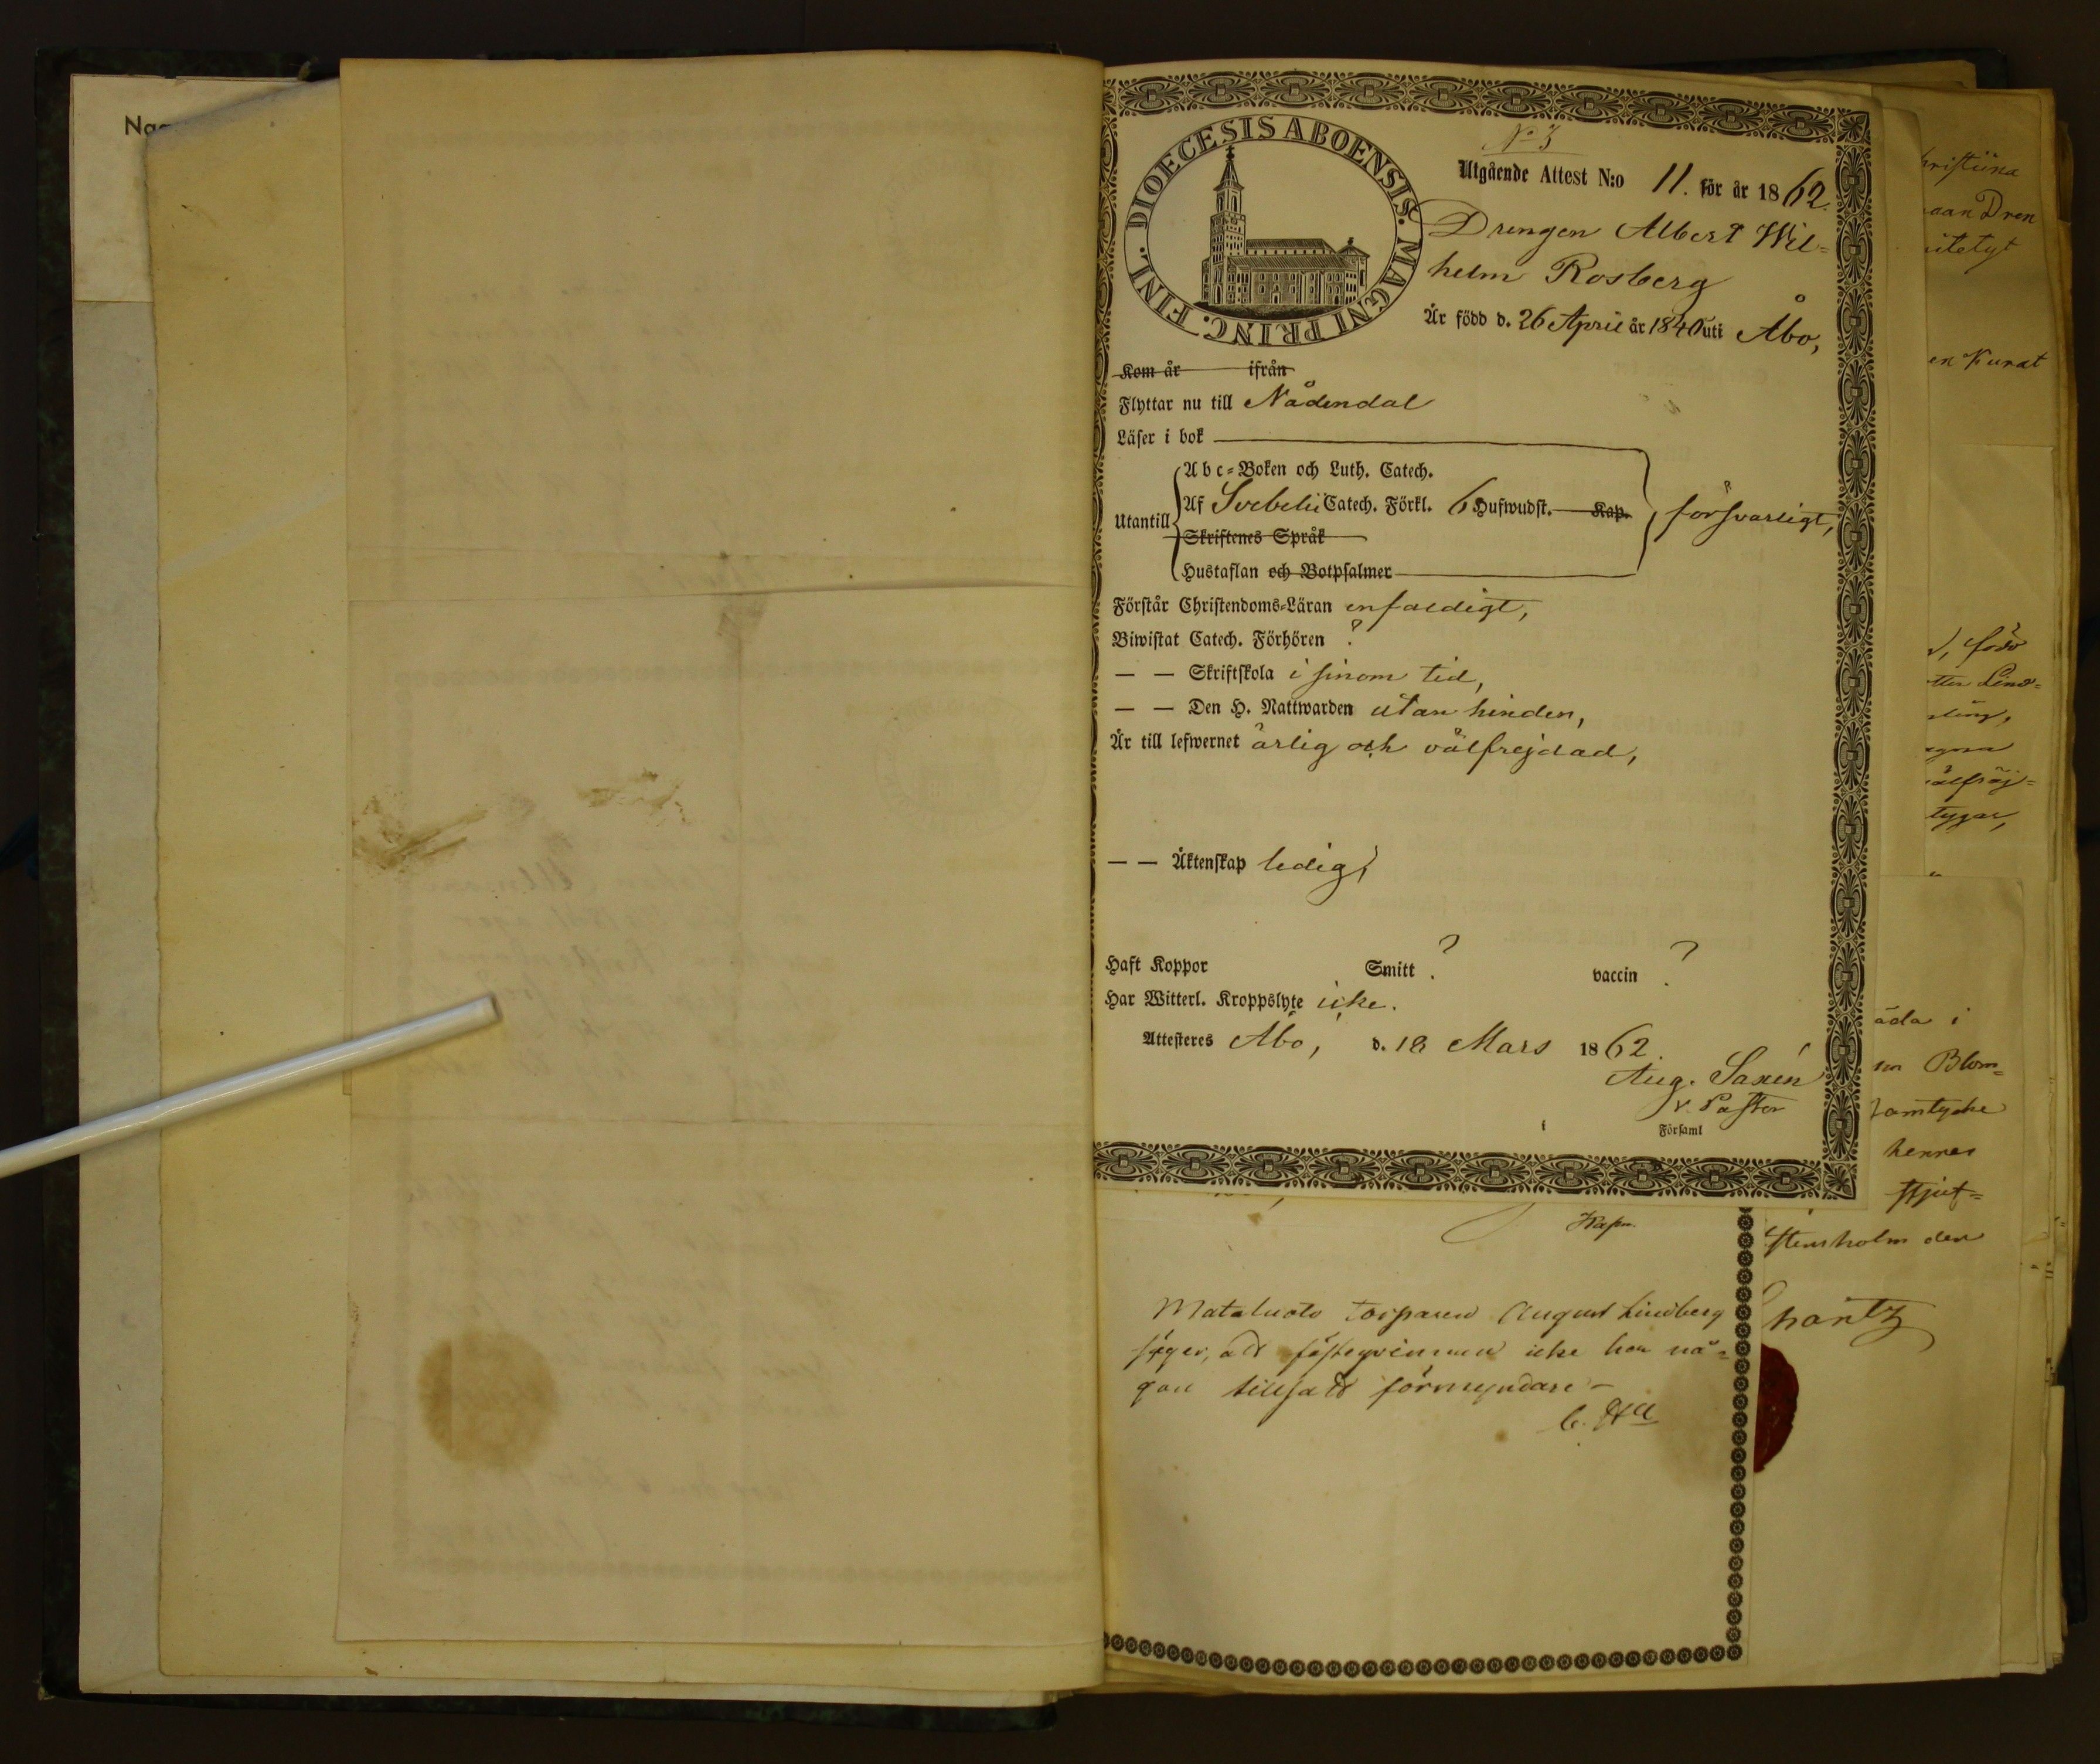 Naa
DIOECESIS ABOENSIS. MAGNI PRINC. FINL.
No 3
Utgående Attest N:o 11. för år 1862.
Drengen Albert Wil=
helm Rosberg
Är född d. 26 April år 1840 uti Åbo,
Kom år ifrån
Flyttar nu till Nådendal
Läser i bok
Abc=Boken och Luth. Catech.
Utantill Af Svebelii Catech. Förkl. 6 Hufwudst. Kap. försvarligt,
Skriftenes Språk
Hustaflan och Botpsalmer
Förstår Christendoms=Läran enfaldigt,
Biwistat Catech. Förhören ?
— — Skriftskola i sinom tid,
— — Den H. Nattwarden utan hinder,
Är till lefwernet ärlig och välfrejdad,
— — Äktenskap ledig,
Haft Koppor Smitt ? vaccin ?
Har Witterl. Kroppslyte icke.
Attesteres Åbo, d. 18 Mars 1862.
Aug. Saxén
v. Pastor
i Församl
Mataluoto Torparen August Lindberg
säger, att fästeqvinnan icke har nå=
gon tillsatt förmyndare –
hristiina
aan Dren
en Kunat
, född
tter Lind=
älfräj=
tygar,
åda i
Blom=
Samtycke
hennes
stensholm den